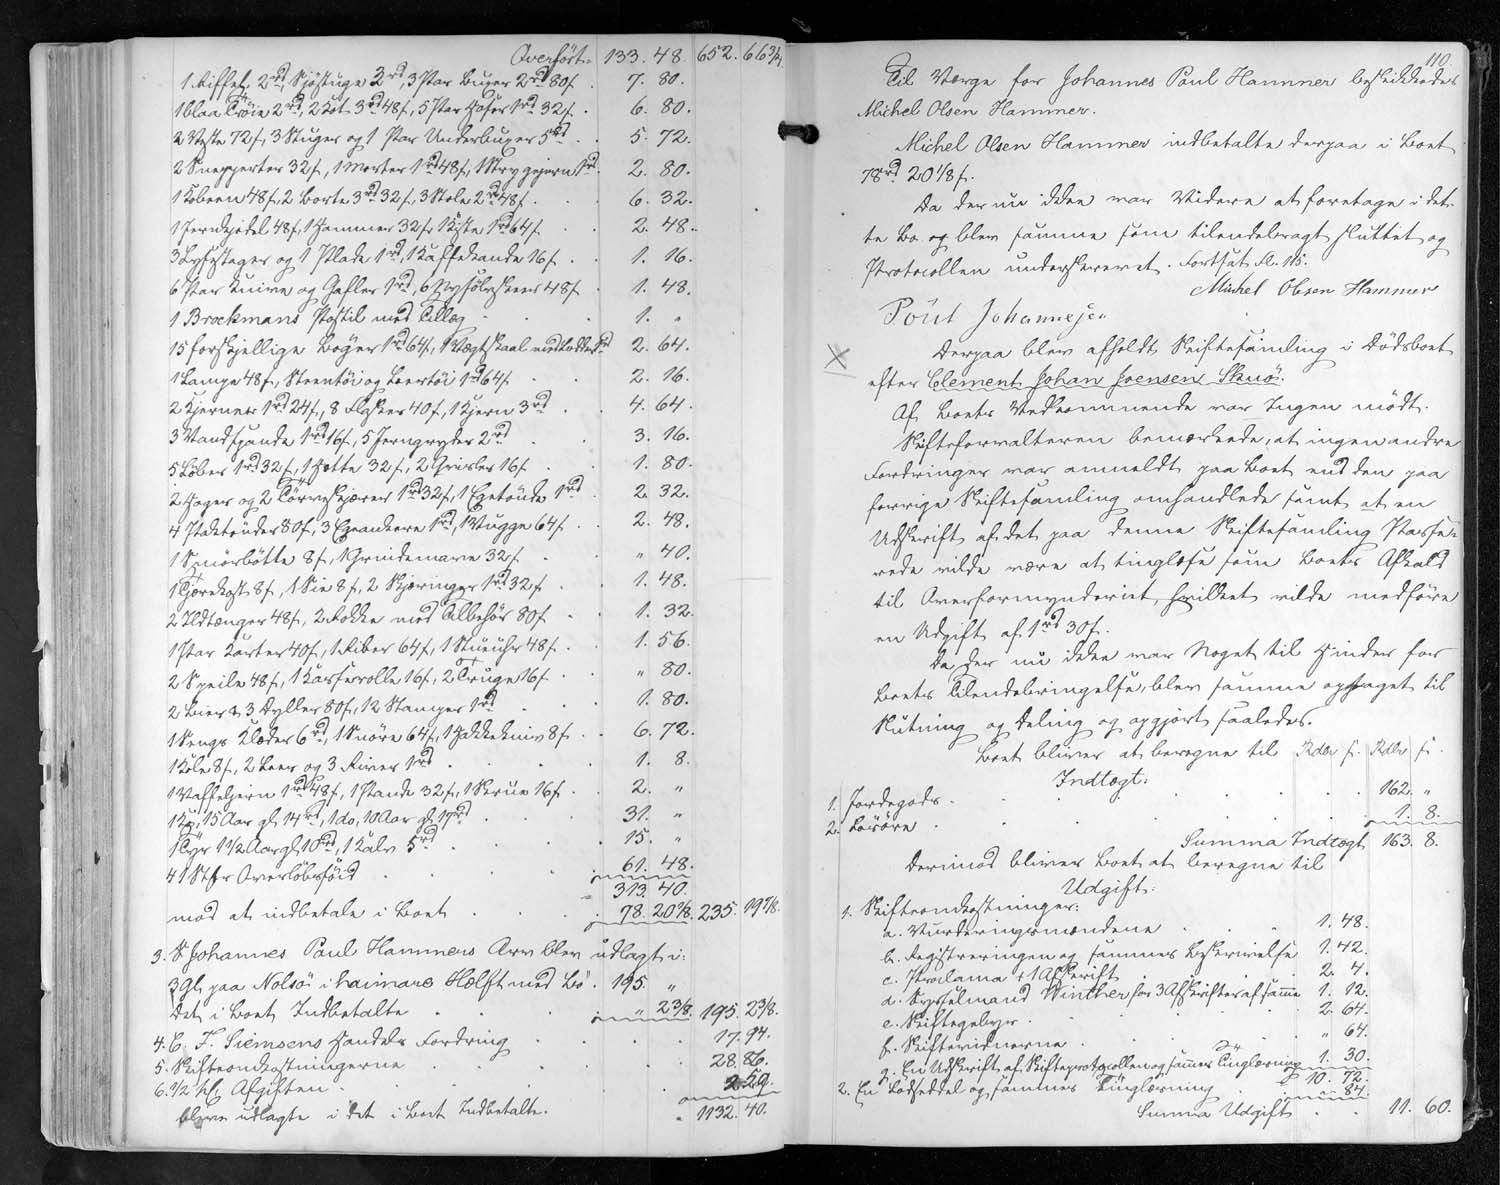 Overført. 133. 48. 652. 66 3/4
1 Riffel 2rd, Sjøstuge 3rd, 3 Par Buxer 2rd 80f 7. 80.
1 blaa Trøie 2rd, 2 Kot 3rd 48f, 5 Par Hoser 1rd 32f. 6. 80.
2 Veste 72f, 3 Stuger og 1 Par Underbuxer 5rd 5. 72.
2 Snepperter 32f, 1 Morter 1rd 48f, 1 Strygejern 1rd. 2. 80.
1 Kobeen 48f, 2 Borte 3rd 32f, 3 Stole 2rd 48f. 6. 32.
1 Hammer 32f 1 Kiste 1rd 64f. 2. 48.
3 Lysestager og 1 Plade 1rd, 1 Kaffekande 16f. 1. 16.
6 Par Knive og Gafler 1rd, 6 Nysølvskeer 48f 1. 48.
1 Brochmans Postil med Tillæg 1. "
15 forskjellige Bøger 1rd 64f, 1 Vægtskaal med Lodder 2. 64.
1 Lampe 48f, Steentøi og Leertøi 1rd 64f. 2. 16.
2 Kjerner 1rd 24f, 8 Flasker 40f, 1 Kjern 3rd 4. 64.
3 Vandspande 1rd 16f, 5 Jerngryder 2rd 3. 16.
5 Løber 1rd 32f, 1 Potte 32f, 2 Grisler 16f 1. 80.
2 Hager og 2 Tørveskjærer 1rd 32f, 1 Egetønde 1rd 2. 32.
4 80f, 3 Egeankere 1rd, 1 Vugge 64f. 2. 48.
1 Smørbøtte 8f, 1 Grindemave 32f. " 40.
1 Tjærekost 8f, 1 Sie 8f, 2 Skjæringer 1rd 32f 1. 48.
2 Ildtænger 48f, 2 Rokke med Tilbehør 80f 1. 32.
1 Par Karter 40f, 1 Riber 64f, 1 Stueuhr 48f. 1. 56.
2 Speile 48f, 1 Kasserolle 16f, 2 Truge 16f. " 80.
2 3 Dyller 80f, 12 Stamper 1rd 1. 80.
1 Sengs Klæder 6rd, 1 Snøre 64f, 1 Hakkekniv 8f. 6. 72.
1 Kole 8f, 2 Leer og 3 River 1rd 1. 8.
1 Vaffeljern 1rd 48f, 1 Pande 32f, 1 Skrue 16f. 2. "
1 Ko, 15 Aar gl. 14rd, 1 do, 10 Aar gl. 17rd 31. "
1 Tyr 1½ Aar gl. 10rd, 1 Kalv 5rd 15. "
41 Stkr Overløbsfoid 61. 48.
313. 40.
mod at indbetale i Boet 78. 20 1/8. 235. 19 7/8.
3. S Johannes Paul Hammers Arv blev udlagt i:
3 Gl. paa Nolsø i haimare Hælft med Bø. 195. "
det i Boet Indbetalte " 2 3/8. 195. 2 3/8.
4. C. F. Siemsens Handels Fordring 17. 94.
5. Skifteomkostningerne 28. 86.
6. ½ pCt Afgiften 2. 59.
bleve udlagte i det i Boet Indbetalte. 1132. 40.
110.
Til Værge for Johannes Paul Hammer beskikkedes
Michel Olsen Hammer.
Michel Olsen Hammer indbetalte derpaa i Boet
78rd 20 1/8 f.
Da der nu ikke var Videre at foretage i det-
te Bo og blev samme som tilendebragt sluttet og
Protocollen underskrevet. Fortsat fl. 115.
Michel Olsen Hammer
Poul Johannesen
X Derpaa blev afholdt Skiftesamling i Dødsboet
efter Clement Johan Joensen Skuø.
Af Boets Vedkommende var Ingen mødt.
Skifteforvalteren bemærkede, at ingen andre
Fordringer var anmeldt paa Boet end den paa
forrige Skiftesamling omhandlede samt at en
Udskrift af det paa denne Skiftesamling Passe-
rede vilde være at tinglæse som Boets Afkald
til Overformynderiet, hvilket vilde medføre
en Udgift af 1rd 30f.
Da der nu ikke var Noget til Hinder for
Boets Tilendebringelse, blev samme optaget til
Slutning og Deling og opgjort saaledes.
Boet bliver at beregne til Rdlr f. Rdlr f.
Indtægt:
1. Jordegods 162. "
2. Løsøre 1. 8.
Summa Indtægt 163. 8.
Derimod bliver Boet at beregne til
Udgift:
1. Skifteomkostninger:
a. Vurderingsmændene 1. 48.
b. Registreringen og sammes Beskrivelse 1. 42.
c. Proclama + 1 Afskrift 2. 4.
d. Sysselmand Winther for 3 Afskrifter af samme 1. 12.
e. Skiftegebyr 2. 64.
f. Skiftevidnerne " 64.
g. En Udskrift af Skifteprotocollen og sammes Tinglæsning 1. 30.
10. 72.
2. En Lodseddel og sammes Tinglæsning " 84.
Summa Udgift 11. 60.